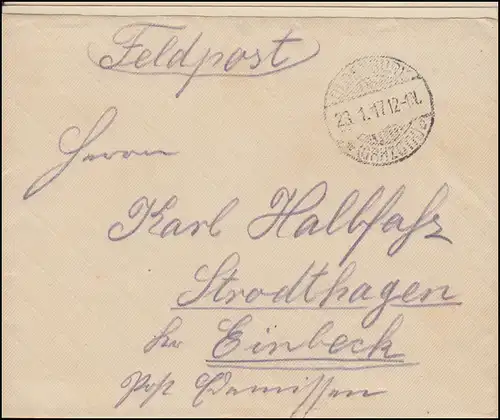 Feldpost
23.1.17.12-1N.
Herrn
Karl Halbfaß
Strodthagen
Kr. Einbeck
Post